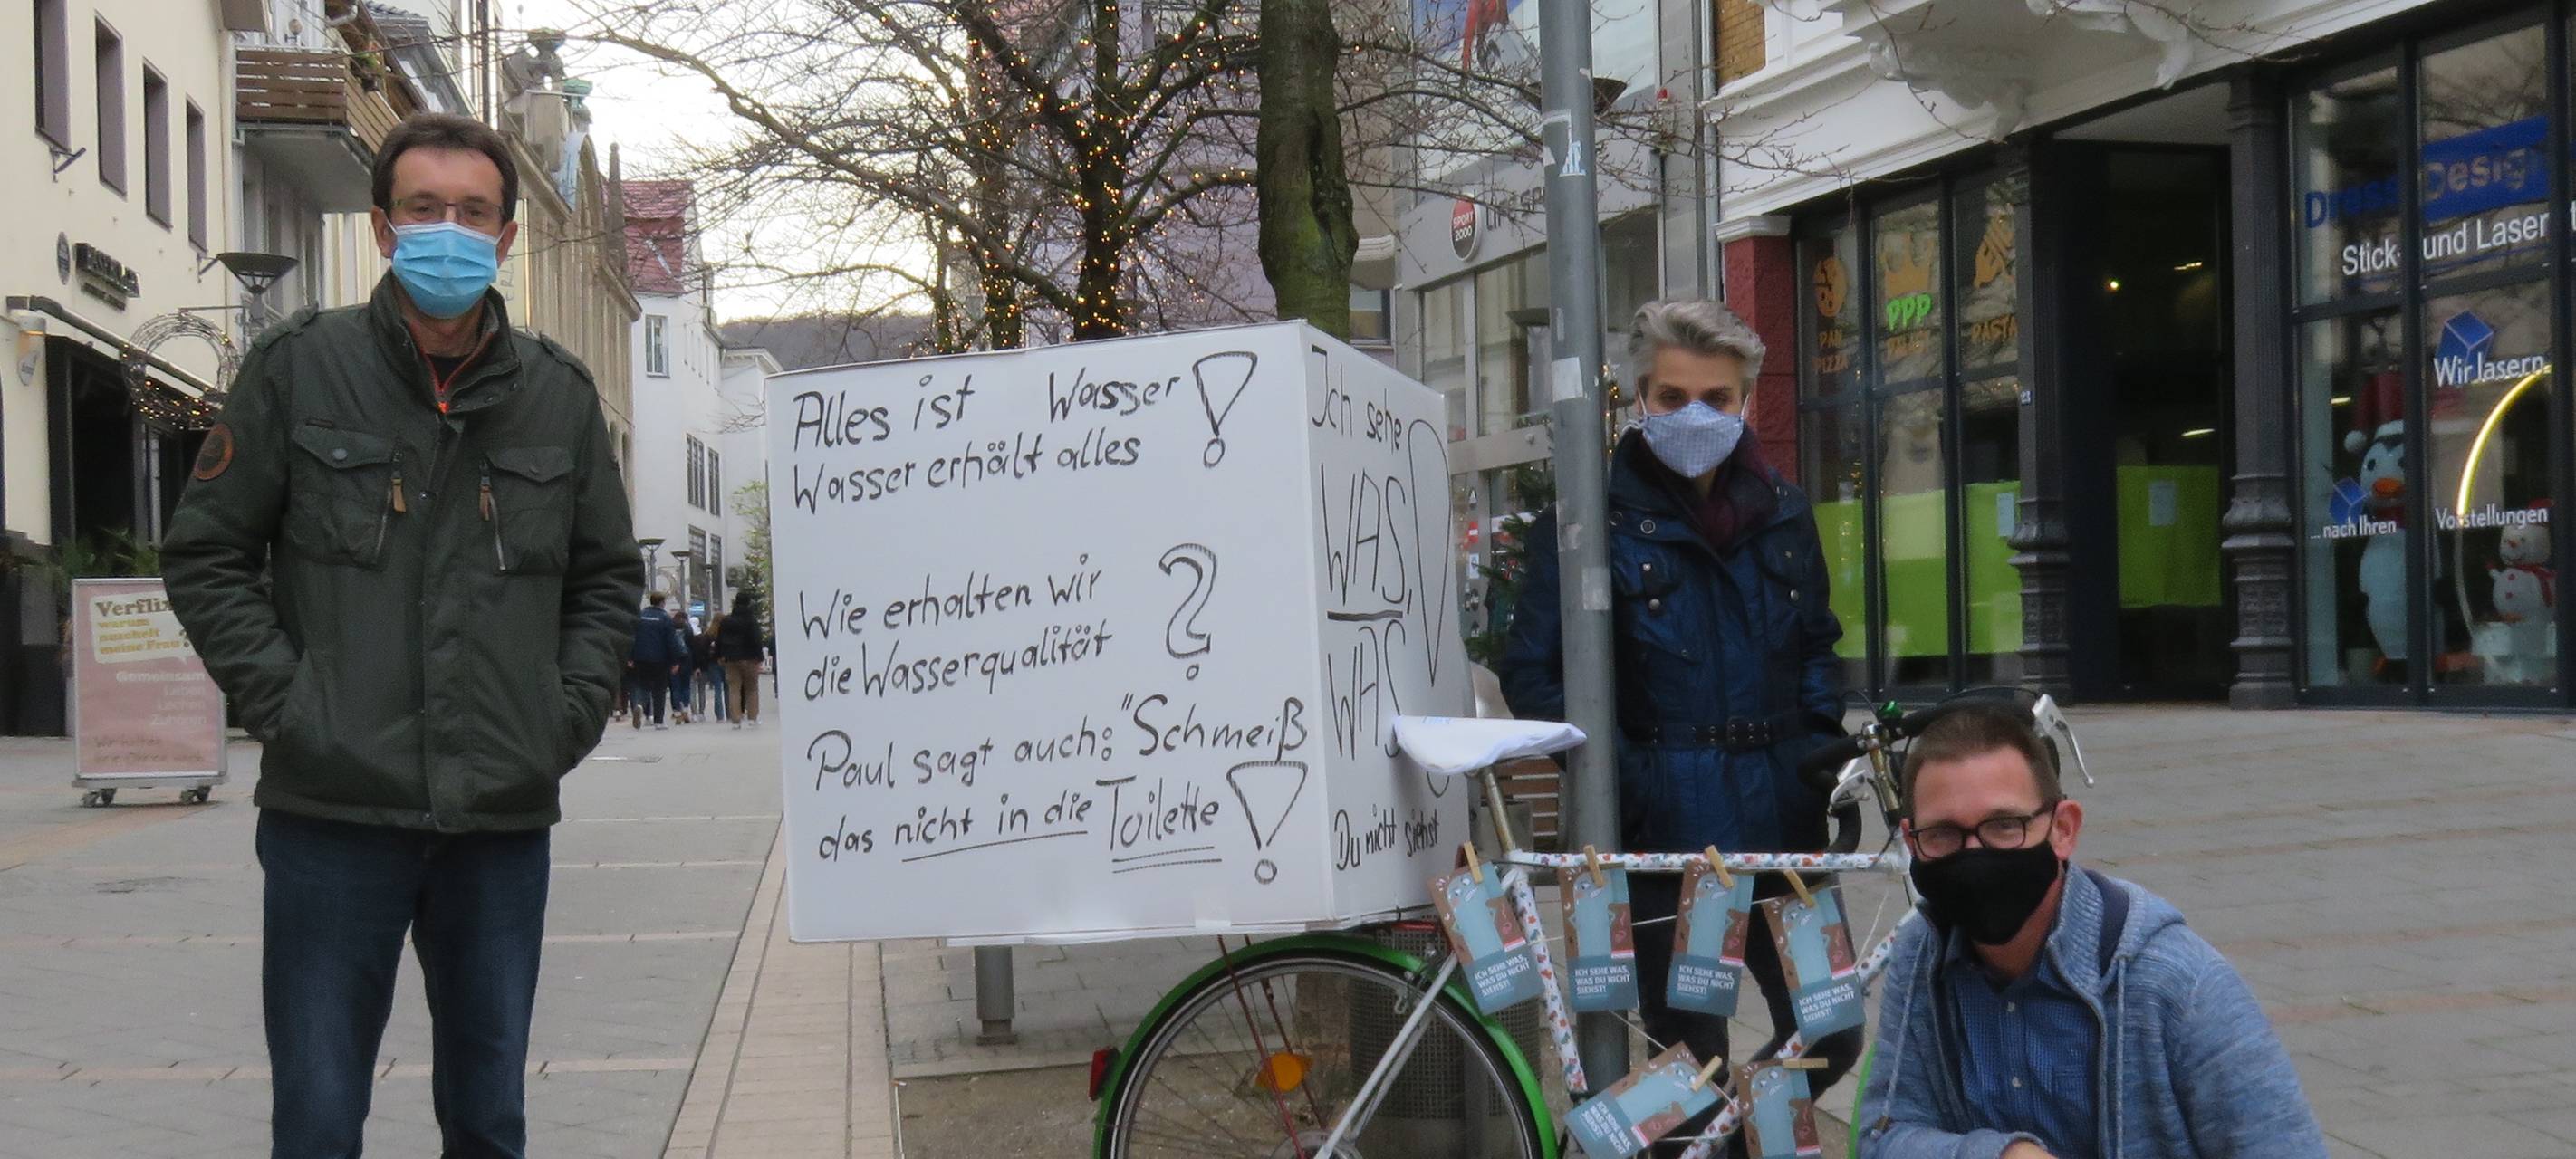 Alles ist Wasser!
Wasser erhält alles
Wie erhalten wir
die Wasserqualität?
Paul sagt auch: "Schmeiß
das nicht in die Toilette!
Ich sehe
WAS,
WAS
Du nicht siehst
ICH SEHE WAS,
WAS DU NICHT
SIEHST!
ICH SEHE WAS,
WAS DU NICHT
SIEHST!
ICH SEHE WAS,
WAS DU NICHT
SIEHST!
ICH SEHE WAS,
WAS DU NICHT
SIEHST!
ICH SEHE WAS,
WAS DU NICHT
SIEHST!
warum
nuschelt
meine Frau?
Gemeinsam
Leben
Lachen
Zuhören
SPORT
2000
PAN
PIZZA
PPP
PASTA
23
Design
Stick- und Laser
Wir lasern
... nach Ihren
Vorstellungen